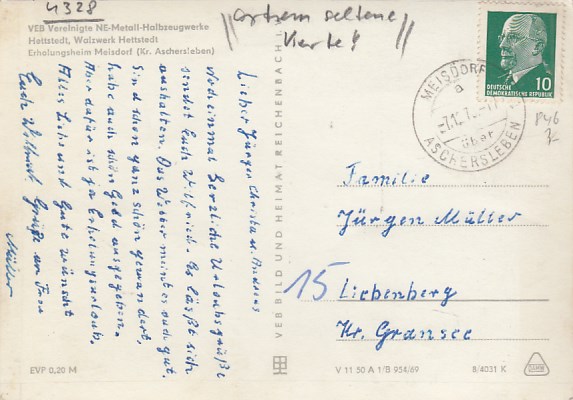 4328
VEB Vereinigte NE-Metall-Halbzeugwerke
Hettstedt, Walzwerk Hettstedt
Erholungsheim Meisdorf (Kr. Aschersleben)
"extrem seltene
Karte"
DEUTSCHE
DEMOKRATISCHE REPUBLIK
10
MEISDORF
a
über
ASCHERSLEBEN
Lieber Jürgen Christa u. Andreas
Nocheinmal Herzliche Urlaubsgrüße
sendet Euch
Es läßt sich
aushalten. Das Wetter meint es auch gut.
Sind schon ganz schön gewandert.
habe auch schön Geld ausgegeben.
Aber dafür ist ja Erholungsurlaub.
Alles Liebe und Gute wünscht
Euch
Grüße an Frau
Müller
VEB BILD UND HEIMAT REICHENBACH i. V.
Familie
Jürgen Müller
15 Liebenberg
Kr. Gransee
EVP 0,20 M
V 11 50 A 1/B 954/69
8/4031 K